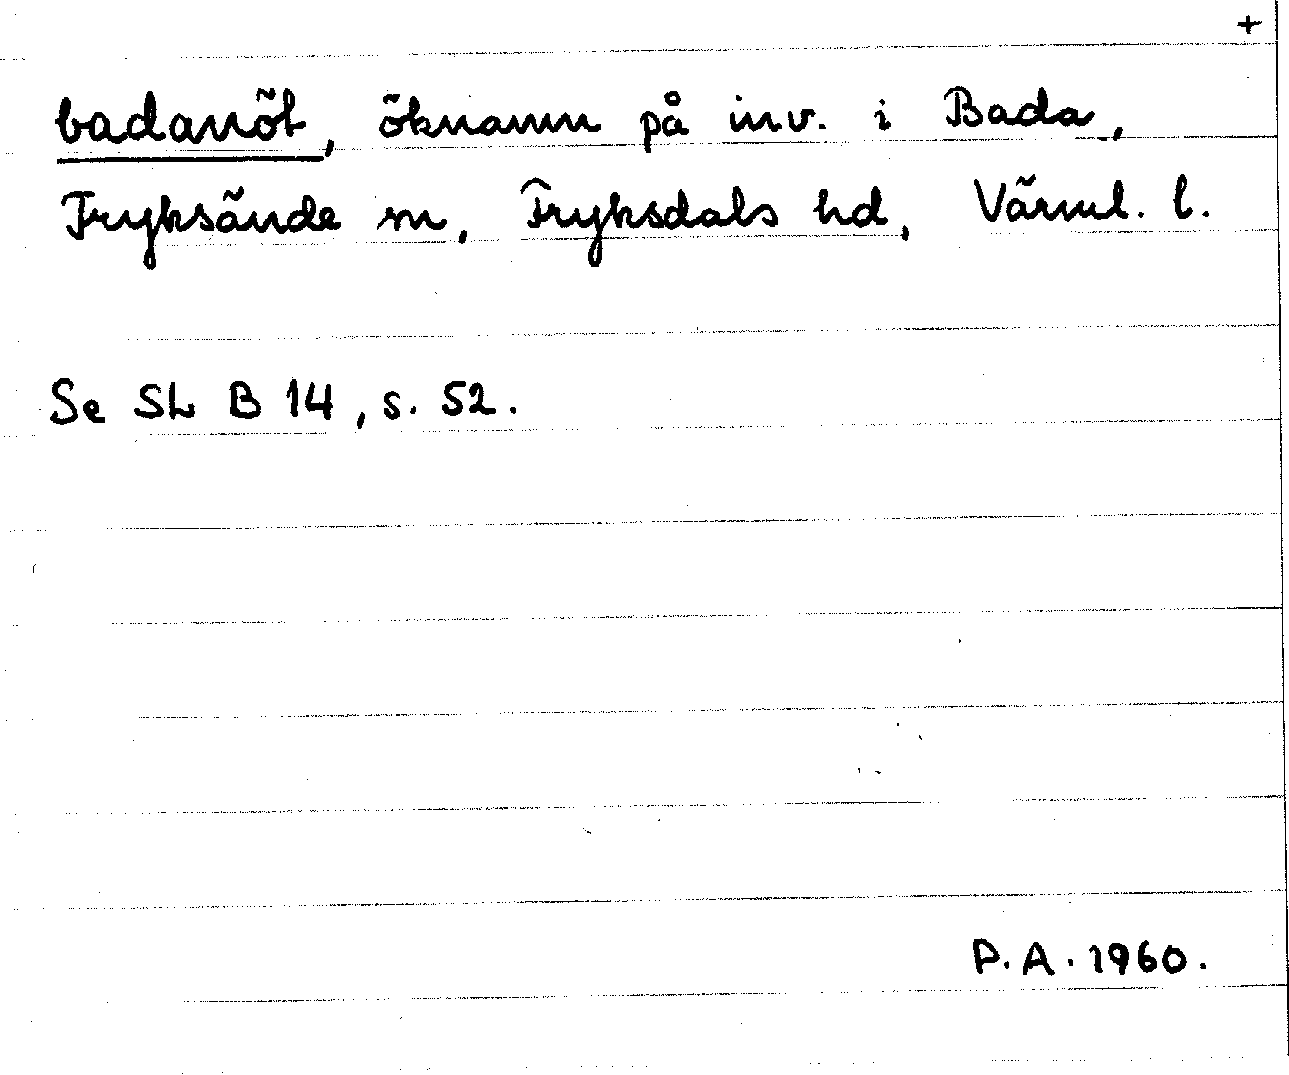 +
badanöt, öknamn på inv. i Bada,
Fryksände sn, Fryksdals hd, Värml. l.
Se SL B 14, s. 52.
P.A. 1960.